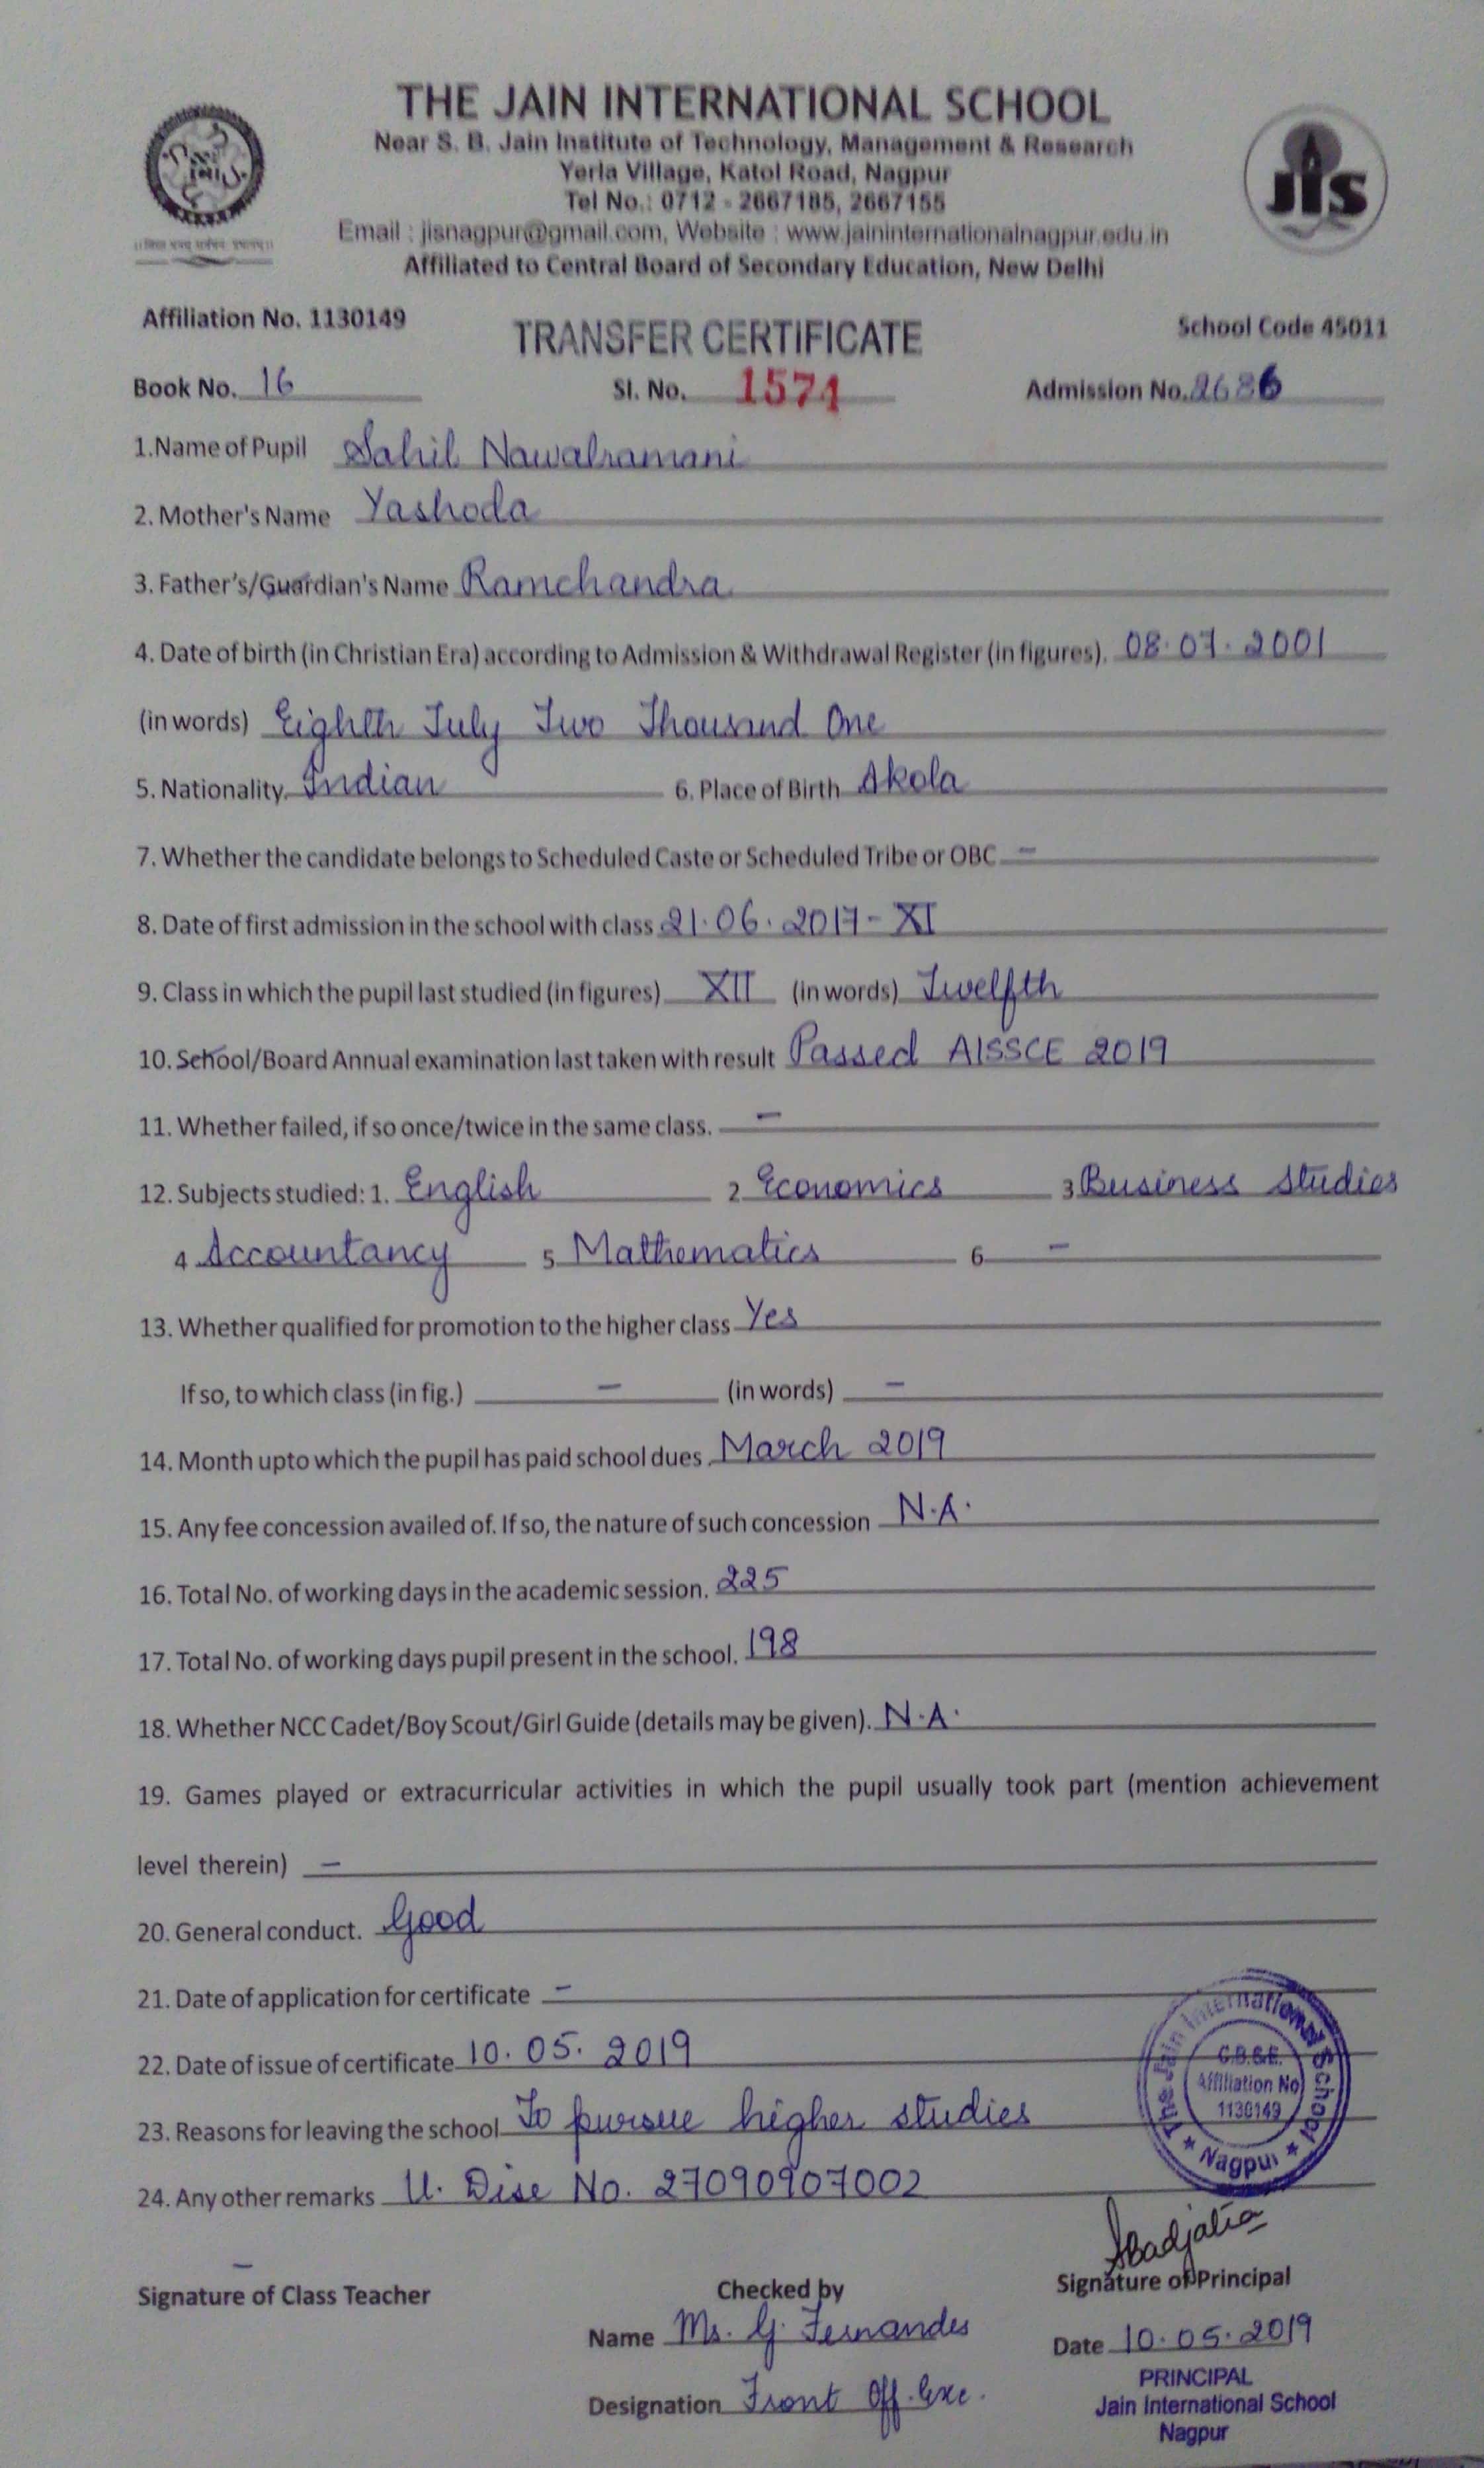 THE JAIN INTERNATIONAL SCHOOL
Near S. B. Jain Institute of Technology, Management & Research
Yerla Village, Katol Road, Nagpur
Tel No.: 0712 - 2667185, 2667155
Email : jisnagpur@gmail.com, Website : www.jaininternationalnagpur.edu.in
Affiliated to Central Board of Secondary Education, New Delhi
JIS
Affiliation No. 1130149 TRANSFER CERTIFICATE School Code 45011
Book No. 16 Sl. No. 1574 Admission No. 2686
1.Name of Pupil Sahil Nawalramani
2. Mother's Name Yashoda
3. Father's/Guardian's Name Ramchandra
4. Date of birth (in Christian Era) according to Admission & Withdrawal Register (in figures). 08.07.2001
(in words) Eighth July Two Thousand One
5. Nationality. Indian 6. Place of Birth Akola
7. Whether the candidate belongs to Scheduled Caste or Scheduled Tribe or OBC -
8. Date of first admission in the school with class 21.06.2017 - XI
9. Class in which the pupil last studied (in figures) XII (in words) Twelfth
10. School/Board Annual examination last taken with result Passed AISSCE 2019
11. Whether failed, if so once/twice in the same class. -
12. Subjects studied: 1. English 2 Economics 3 Business Studies
4 Accountancy 5 Mathematics 6 -
13. Whether qualified for promotion to the higher class Yes
If so, to which class (in fig.) - (in words) -
14. Month upto which the pupil has paid school dues. March 2019
15. Any fee concession availed of. If so, the nature of such concession N.A.
16. Total No. of working days in the academic session. 225
17. Total No. of working days pupil present in the school. 198
18. Whether NCC Cadet/Boy Scout/Girl Guide (details may be given). N.A.
19. Games played or extracurricular activities in which the pupil usually took part (mention achievement
level therein) -
20. General conduct. Good
21. Date of application for certificate -
22. Date of issue of certificate 10.05.2019
23. Reasons for leaving the school To pursue higher studies
24. Any other remarks U. Dise No. 27090907002
The Jain International School
C.B.S.E.
Affiliation No
1130149
★ Nagpur ★
-
Signature of Class Teacher Checked by Signature of Principal
Name Ms. G. Fernandes Date 10.05.2019
Designation Front Off. Exe.
PRINCIPAL
Jain International School
Nagpur